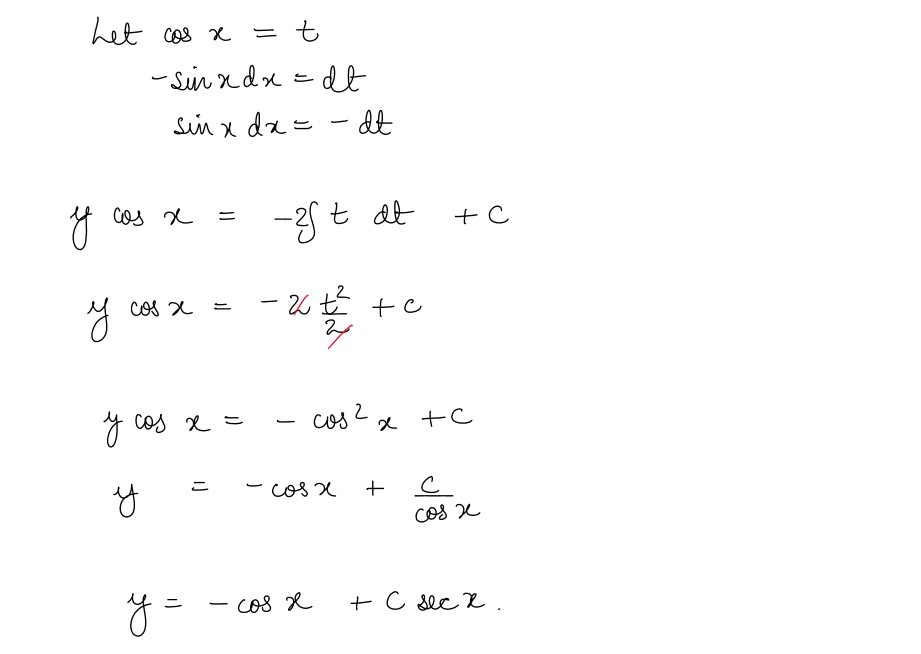 Let cos x = t
-sin x dx = dt
sin x dx = - dt
y cos x = -2∫ t dt + C
y cos x = - 2 t²/2 + c
y cos x = - cos² x + C
y = - cos x + C/cos x
y = - cos x + C sec x.